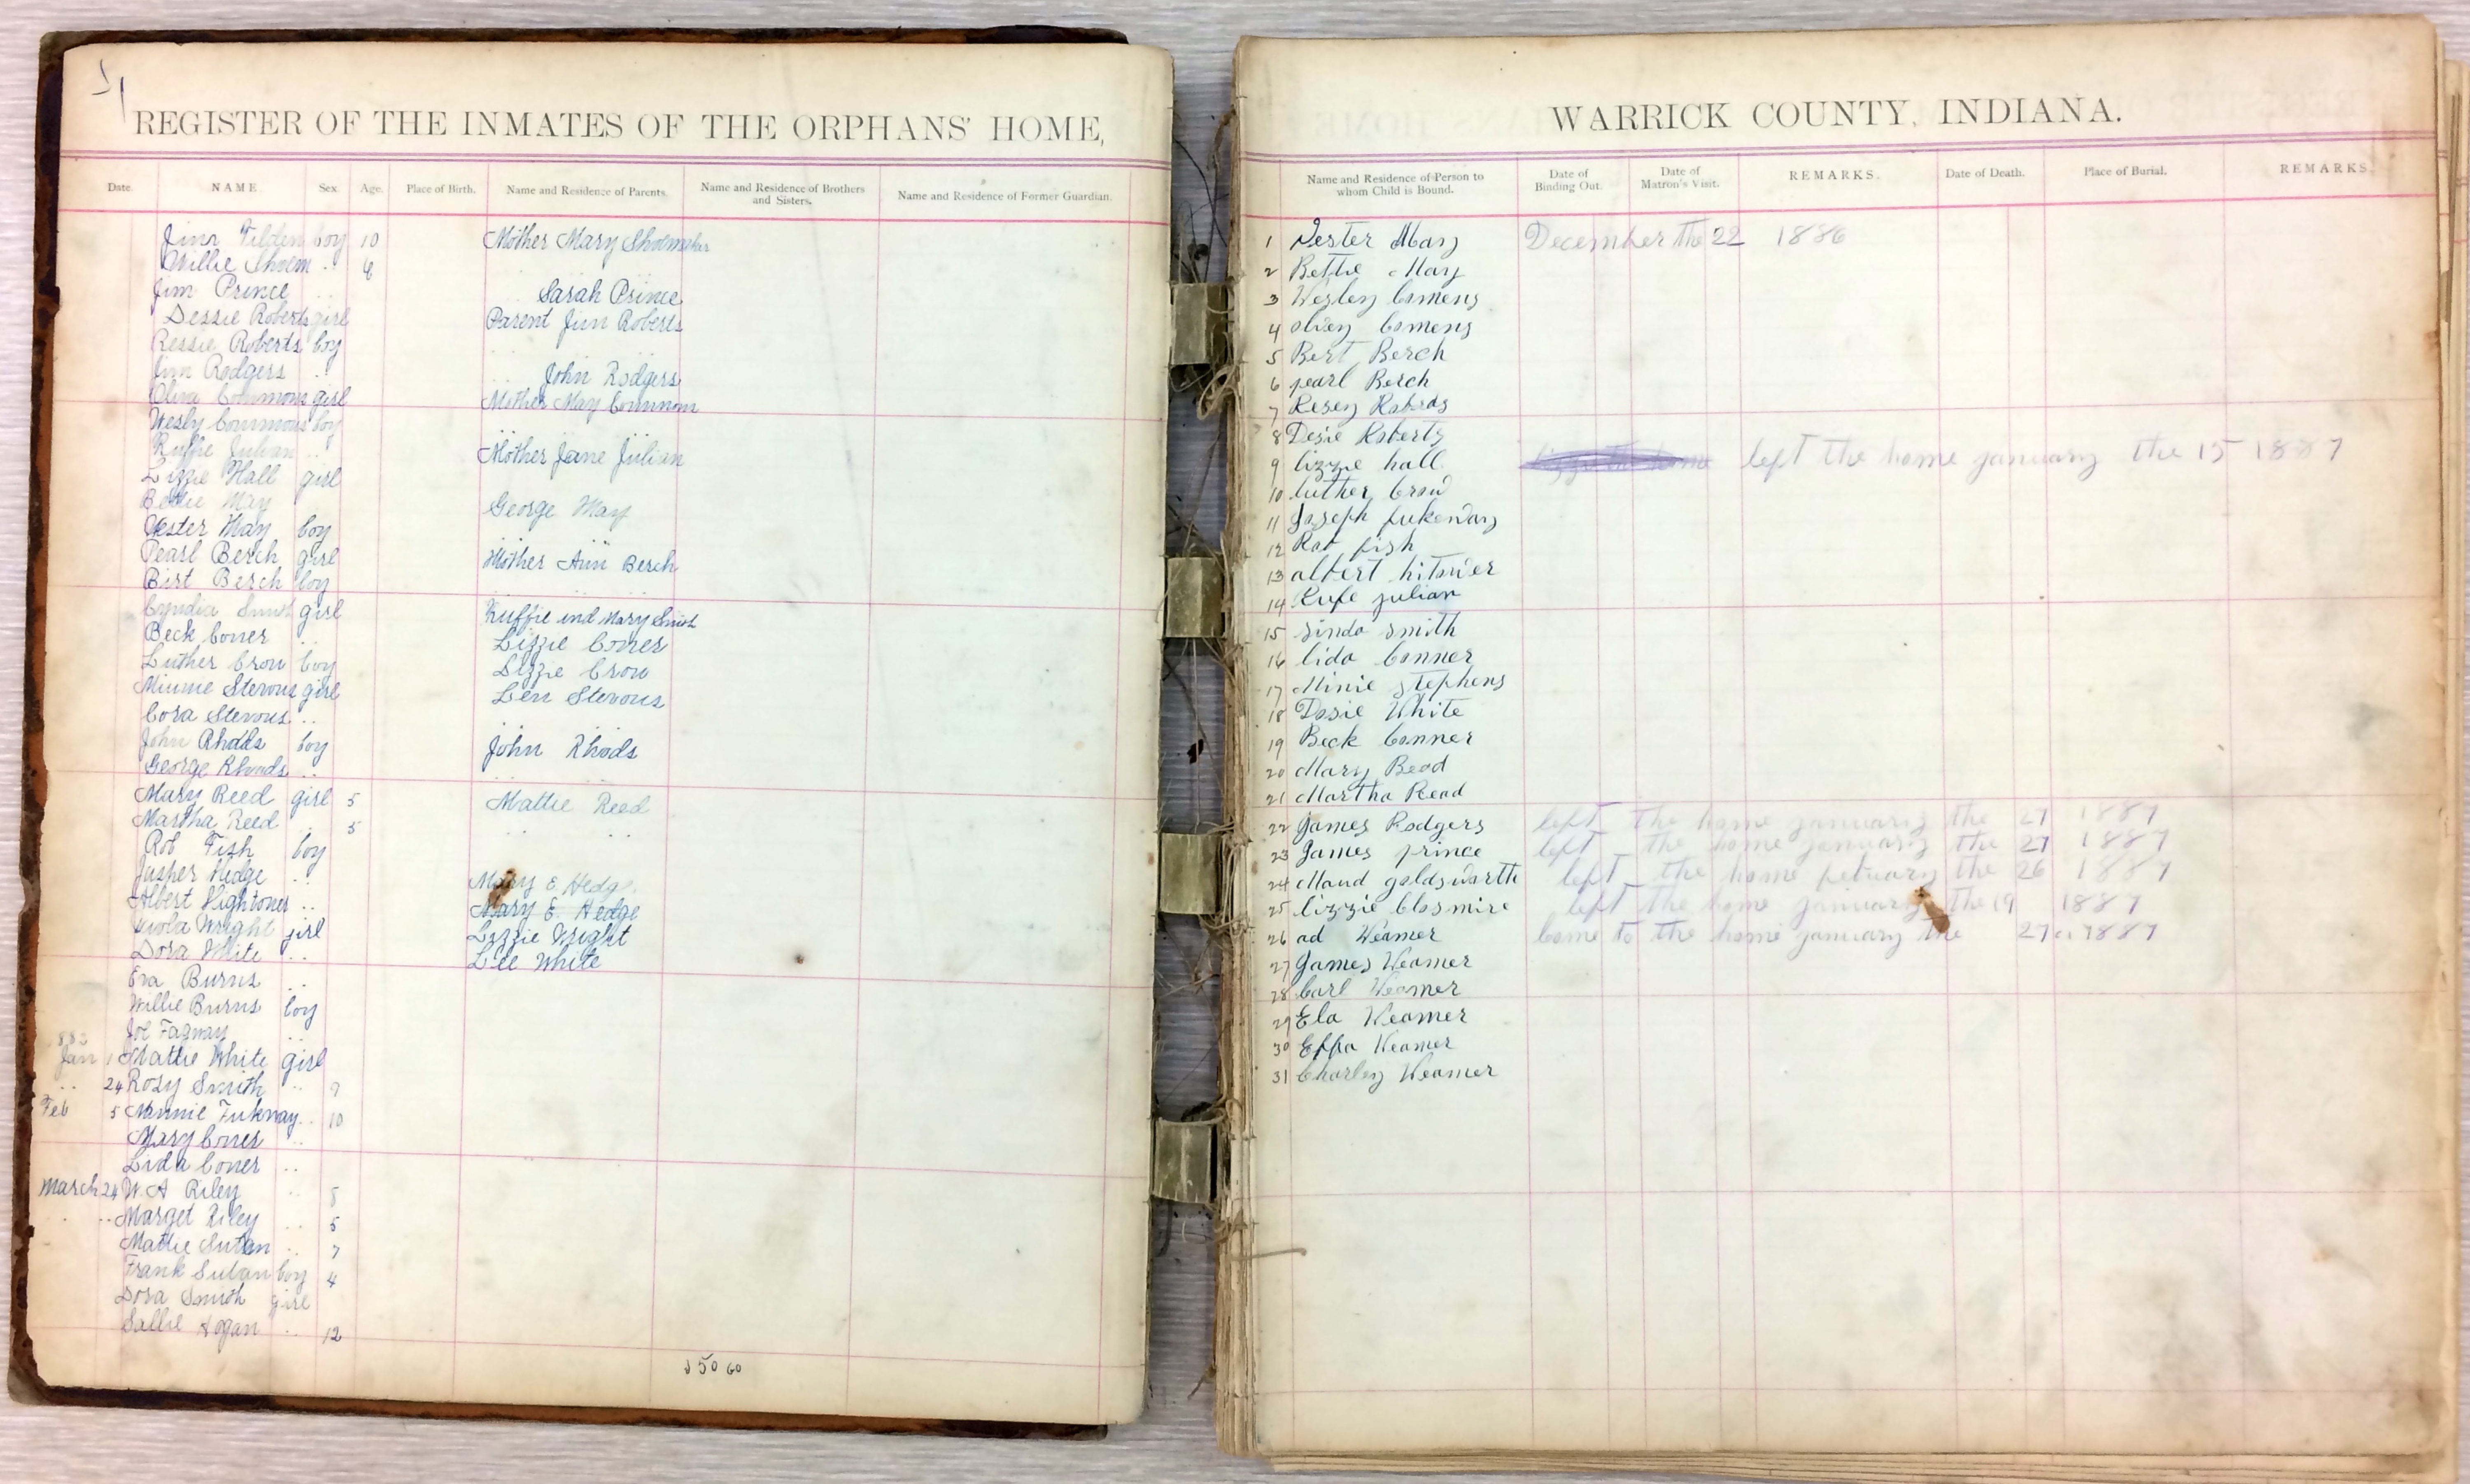 REGISTER OF THE INMATES OF THE ORPHANS' HOME,
Date. NAME. Sex. Age. Place of Birth. Name and Residence of Parents. Name and Residence of Brothers and Sisters. Name and Residence of Former Guardian.
Jim Tilden boy 10 Mother Mary Shoemaker
Willie Shoem .. 4
Jim Prince .. Sarah Prince
Dessie Roberts girl Parent Jim Roberts
Ressie Roberts boy
Jim Rodgers .. John Rodgers
Oliva Commons girl Mother May Commons
Wesly Commons boy
Ruffie Julian .. Mother Jane Julian
Lizzie Hall girl
Bettie May George May
Vester May boy
Pearl Berch girl Mother Ann Berch
Birt Berch boy
Cyndia Smith girl Ruffie and Mary Smith
Beck Coner .. Lizzie Coner
Luther Crow boy Lizzie Crow
Minnie Stevons girl Len Stevons
Cora Stevons ..
John Rhods boy John Rhods
George Rhods ..
Mary Reed girl 5 Mattie Reed
Martha Reed .. 5
Rob Fish boy
Jasper Hedge .. Mary E. Hedg
Albert Hightower .. Mary E. Hedge
Viola Wright girl Lizzie Wright
Dora White .. Lee White
Eva Burns ..
Willie Burns boy
Joe Faqway ..
882
Jan 1 Mattie White girl
.. 24 Rosy Smith .. 9
Feb 5 Nannie Fukway .. 10
Mary Coner ..
Lida Coner ..
March 24 W. A Riley .. 5
.. Marget Riley .. 5
Mattie Sutan .. 7
Frank Sutan boy 4
Dora Smith girl
Sallie Hogan .. 12
50 60
WARRICK COUNTY, INDIANA.
Name and Residence of Person to whom Child is Bound. Date of Binding Out. Date of Matron's Visit. REMARKS. Date of Death. Place of Burial. REMARKS.
1 Vester May December the 22 1886
2 Bettie May
3 Wesley Comens
4 olvey Comens
5 Bert Berch
6 pearl Berch
7 Resey Roberds
8 Desie Roberts
9 lizzie hall left the home january the 15 1887
10 luther Crow
11 Joseph fukeway
12 Rob fish
13 albert hitower
14 Rufe julian
15 sinda smith
16 lida Conner
17 Minie stephens
18 Dosie White
19 Beck Conner
20 Mary Read
21 Martha Read
22 James Rodgers left the home january the 27 1887
23 James prince left the home january the 27 1887
24 Maud goldsworth left the home febuary the 26 1887
25 lizzie Closmire left the home january the 19 1887
26 ad Weamer Come to the home january the 27 1887
27 James Weamer
28 Carl Weamer
29 Ela Weamer
30 Effa Weamer
31 Charley Weamer